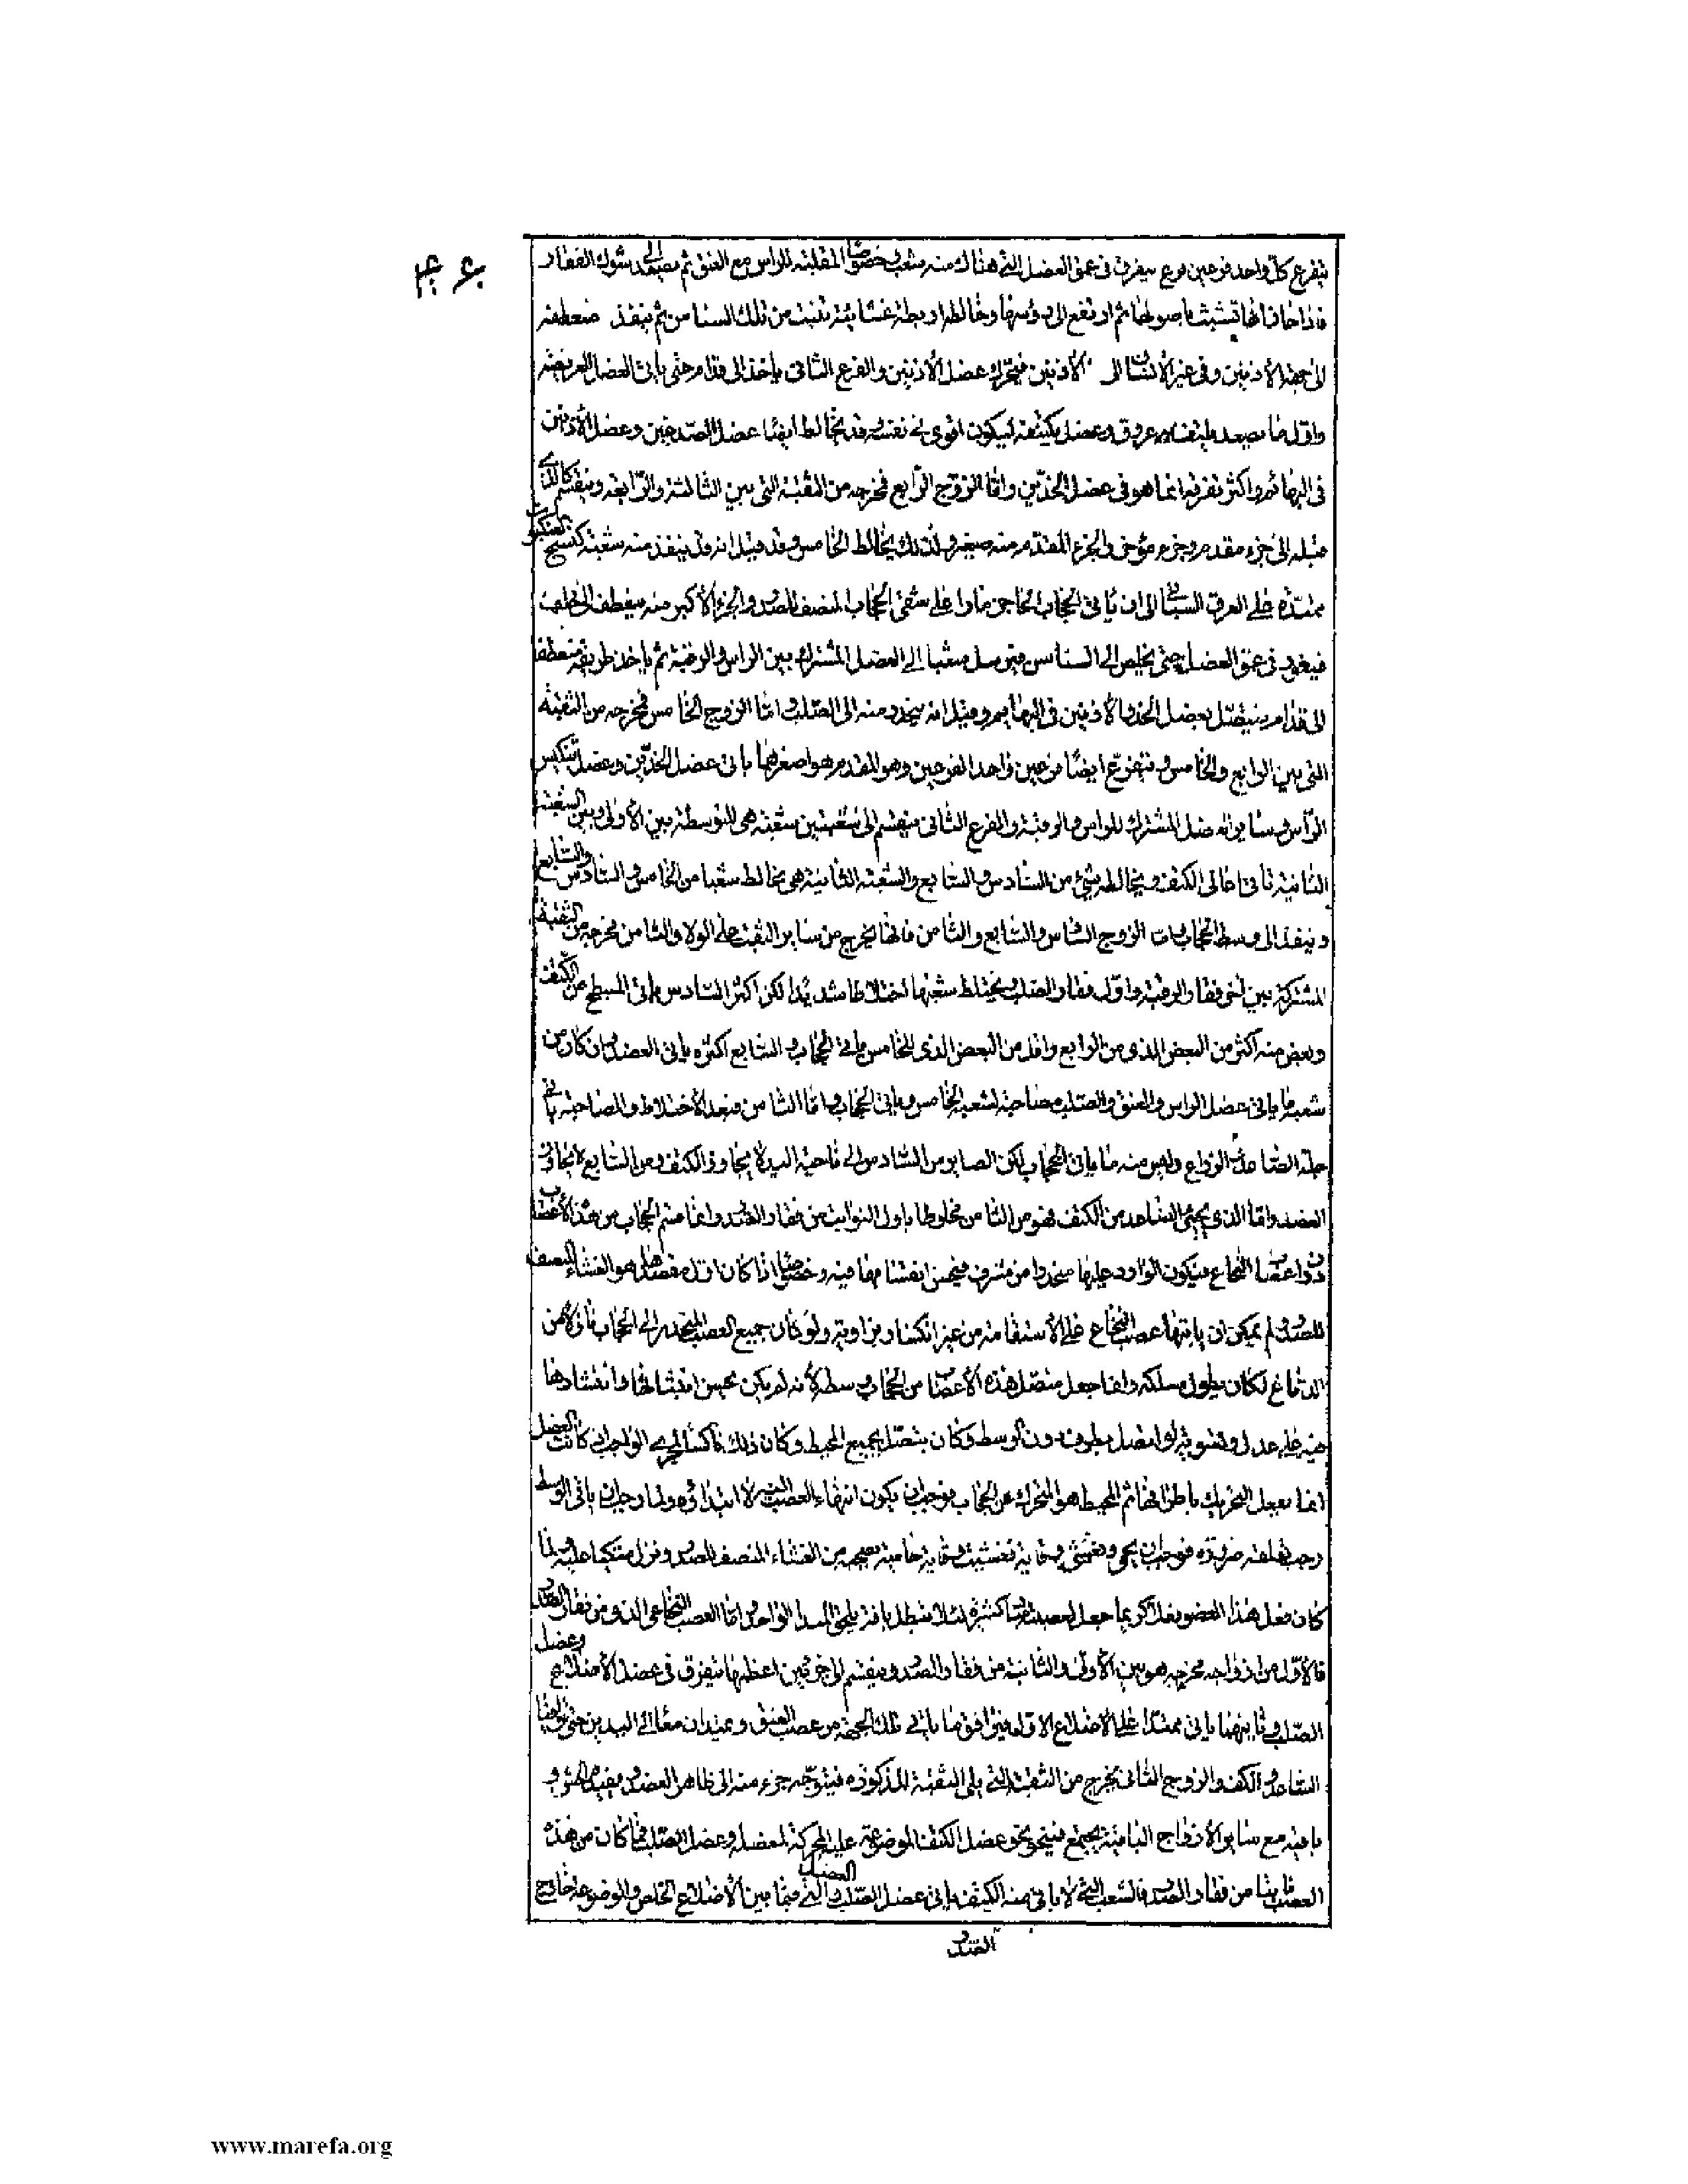 يتفرع كل واحد فرعين فرع يتفرق فى عمق العضل التى هناك منه شعب وخصوصا المقلبة للراس مع العنق ثم يصعد الى شوك الفقار
فاذا حاذاها تشبث باصولها ثم ارتفع الى رؤسها وخالطه اربطة غشائية تنبت من تلك السناسن ثم ينفذ منعطفة
الى جهة الأذنين وفى غير الانسان الى الأذنين فيحرك عضل الأذنين والفرع الثانى ياخذ الى قدام حتى ياتى العضل العريضة
واول ما يصعد يلتف به عروق وعضل يكتنفه ليكون اقوى فى نفسه وقد يخالط ايضا عضل الصدغين وعضل الأذنين
فى البهائم واكثر تفرقه انما هو فى عضل الخدين واما الزوج الرابع فمخرجه من الثقبة التى بين الثالثة والرابعة وينقسم كالذى
قبله الى جزء مقدم وجزء مؤخر والجزء المقدم منه صغير ولذلك يخالط الخامس وقد قيل انه قد ينفذ منه شعبة كنسج العنكبوت
ممتدة على العرق السباتى الى ان ياتى الحجاب الحاجز مارا على شقى الحجاب المنصف للصدر والجزء الأكبر منه ينعطف الى خلف
فيغور فى عمق العضل حتى يخلص الى السناسن فيرسل شعبا الى العضل المشترك بين الراس والرقبة ثم ياخذ طريقه منعطفا
الى قدام فيتصل بعضل الخد والأذنين فى البهايم وقيل انه ينحدر منه الى الصلب واما الزوج الخامس فمخرجه من الثقبة
التى بين الرابع والخامس ويتفرع ايضا فرعين واحد الفرعين وهو المقدم هو اصغرهما ياتى عضل الخدين وعضل تنكيس
الراس وساير العضل المشترك للراس والرقبة والفرع الثانى ينقسم الى شعبتين شعبة هى المتوسطة بين الأولى وبين الشعبة
الثانية تاتى اعالى الكتف ويخالطه شئ من السادس والسابع والشعبة الثانية هى يخالط شعبا من الخامس والسادس والسابع
وينفذ الى وسط الحجاب وامات الزوج السادس والسابع والثامن فانها يخرج من ساير الثقب على الولاء والثامن مخرجه من الثقبة
المشتركة بين اخر فقار الرقبة واول فقار الصلب ويختلط شعبها اختلاطا شديدا لكن اكثر السادس ياتى المسطح من الكتف
وبعض منه اكثر من البعض الذى من الرابع واقل من البعض الذى للخامس ياتى الحجاب والسابع اكثره ياتى العضد وان كان من
شعبه ما ياتى عضل الراس والعنق والصلب مصاحبة لشعبة الخامس وياتى الحجاب واما الثامن فبعد الأختلاط والمصاحبة ياتى
جلد الساعد والذراع وليس منه ما ياتى الحجاب لكن الصاير من السادس الى ناحية اليد لا يجاوز الكتف ومن السابع لا يجاوز
العضد واما الذى يجئ الساعد من الكتف فهو من الثامن مخلوطا باول النوابت من فقار الصدر وانما قسم الحجاب من هذه الأعصاب
دون اعصاب النخاع ليكون الوارد عليها منحدرا من مشرف فيحسن انقسامها فيه وخصوصا اذا كان اول مقصدها هو الغشاء المنصف
للصدر ولم يمكن ان ياتيها عصب النخاع على الأستقامة من غير انكسار بزاوية ولو كان جميع العصب المنحدر الى الحجاب نازلا من
الدماغ لكان يطول مسلكه وانما جعل متصل هذه الأعصاب من الحجاب وسطه لأنه لم يكن يحسن انبثاثها وانتشارها
فيه على عدل وتسوية لو اتصل بطرف دون الوسط وكان يتصل بجميع المحيط وكان ذلك ناكسا لمجرى الواجب اى كانت العضل
انما يفعل التحريك باطرافها ثم المحيط هو المتحرك من الحجاب فوجب ان يكون انتهاء العصب اليه لا ابتداؤه ولما وجب ان ياتى الوسط
وجب تعلقه ضرورة فوجب ان يحمى ويغشى وقاية فغشيت وقاية حامية تصحبه من الغشاء المنصف للصدر ونزل متكيا عليه ولما
كان فعل هذا العضو فعلا كريما جعل لعصبته مبادى كثيرة لئلا يبطل بافة يلحق المبدا الواحد واما العصب النخاعى الذى من فقار الصدر
فالأول من ازواجه مخرجه هو بين الأولى والثانية من فقار الصدر وينقسم الى جزئين اعظمهما يتفرق فى عضل الأضلاع وعضل
الصلب وثانيهما ياتى ممتدا على الاضلاع الاول فيوافق ما ياتى تلك الجهة من عصب العنق ويمتدان معا الى اليدين حتى يوافيا
الساعد والكف والزوج الثانى يخرج من الثقبة التى يلى الثقبة المذكورة فيتوجه جزء منه الى ظاهر العضد ويفيده الحس و
باقيه مع ساير الأزواج الباقية يجتمع فينحو نحو عضل الكتف الموضوعة عليه المحركة لمفصله وعضل الصلب فما كان من هذه
العصب نابتا من فقار الصدر فالشعب التى لا ياتى منه الكتف ياتى عضل الصلب والعضل التى فيما بين الأضلاع الخلص والموضوعة خارج
الصدر
www.marefa.org